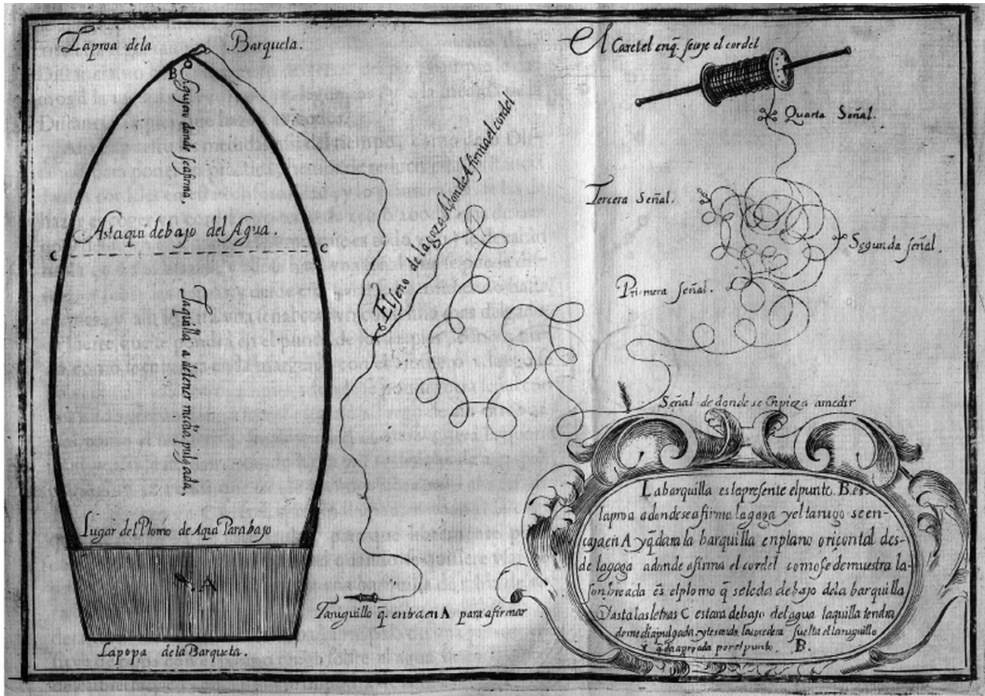 La proa de la Barqueta.
B
Gujero donde se afirma.
Asta qui debajo del Agua.
C
La quilla a de tener media pulgada
Lugar del Plomo de Aqui Para bajo
A
La popa de la Barqueta.
El seno de la goza Adonde Afirma el cordel
Taruguillo q̄. entra en A para afirmar
El Caretel en q̄. se coje el cordel
Quarta Señal.
Tercera Señal.
Segunda señal.
Primera Señal.
Señal de donde se Enpieza amedir
La barquilla es la presente el punto. B. es
la proa a donde se afirma la gaza y el tarugo se en-
caja en A y q̄dara la barquilla en plano oriçontal des-
de la gaga adonde afirma el cordel como se demuestra la
onbreada es el plomo q̄ se le da debajo de la barquilla
Dasta las letras C estara debajo del agua la quilla tendra
de media pulgada y tirando suelta el taruguillo
y q̄da aproada por el punto B.